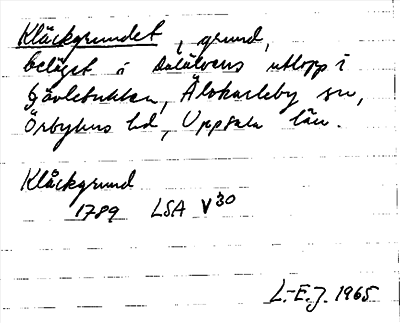 Kläckgrundet, grund,
beläget i Dalälvens utlopp i
Gävlebukten, Älvkarleby sn,
Örbyhus hd, Uppsala län.
Klåckgrund
1789 LSA V30
L.-E.J. 1965